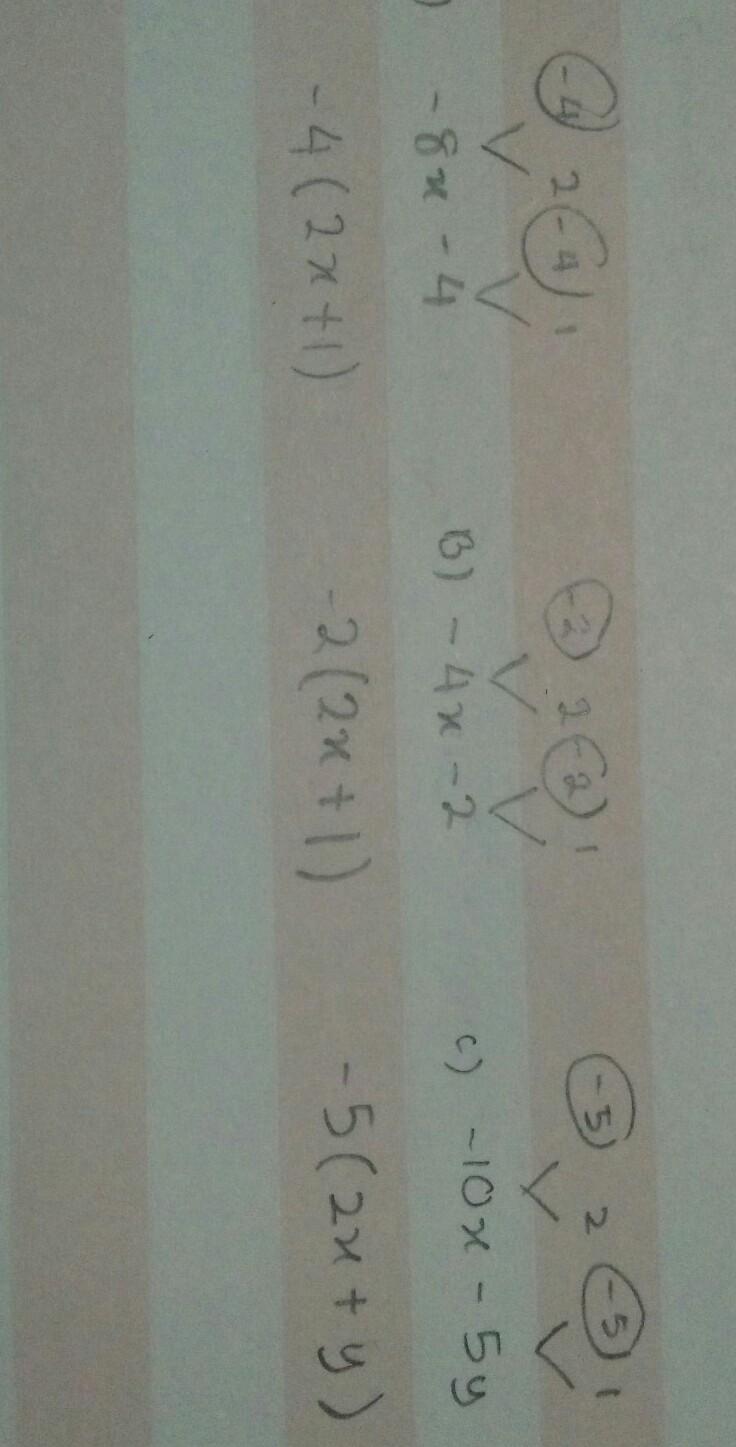 -4 2 -4 1 -2 2 -2 1 -5 2 -5 1
) -8x - 4 B) -4x - 2 c) -10x - 5y
-4(2x+1) -2(2x+1) -5(2x+y)